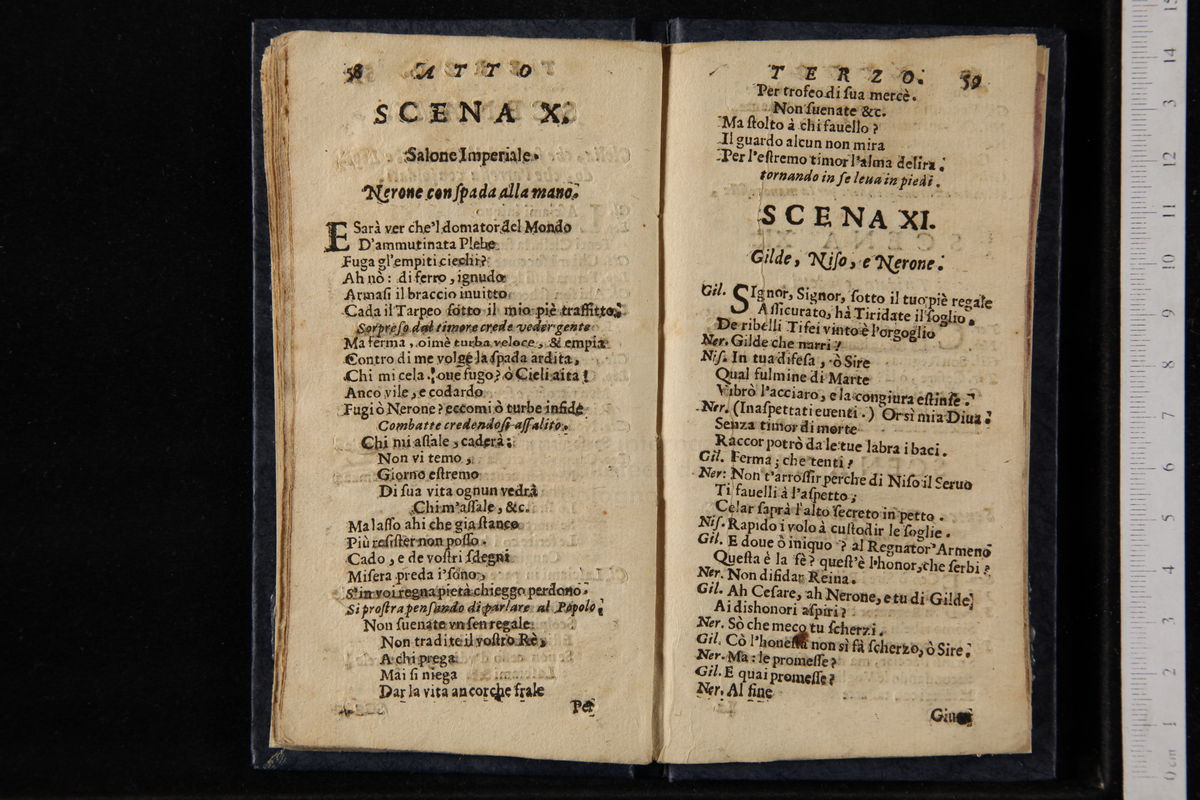 58 ATTO
SCENA X.
Salone Imperiale.
Nerone con ſpada alla mano.
ESarà ver che'l domator del Mondo
D'ammutinata Plebe
Fuga gl'empiti ciechi?
Ah nò: di ferro, ignudo
Armaſi il braccio inuitto
Cada il Tarpeo ſotto il mio piè traffitto.
Sorpreſo dal timore crede veder gente
Ma ferma, oimè turba veloce, & empia
Contro di me volge la ſpada ardita,
Chi mi cela? oue fugo? ò Cieli aita!
Anco vile, e codardo
Fugi ò Nerone? eccomi ò turbe infide
Combatte credendoſi aſſalito.
Chi mi aſſale, caderà:
Non vi temo,
Giorno eſtremo
Di ſua vita ognun vedrà
Chi m'aſſale, &c.
Ma laſſo ahi che gia ſtanco
Più reſiſter non poſſo.
Cado, e de voſtri ſdegni
Miſera preda i'ſono,
S'in voi regna pietà chieggo perdono.
Si proſtra penſando di parlare al Popolo.
Non ſuenate vn ſen regale
Non tradite il voſtro Rè,
A chi prega
Mai ſi niega
Dar la vita ancorche frale
Per
TERZO. 59
Per trofeo di ſua mercè.
Non ſuenate &c.
Ma ſtolto à chi fauello?
Il guardo alcun non mira
Per l'eſtremo timor l'alma delira.
tornando in ſe leua in piedi.
SCENA XI.
Gilde, Niſo, e Nerone.
Gil. SIgnor, Signor, ſotto il tuo piè regale
Aſſicurato, hà Tiridate il ſoglio.
De ribelli Tifei vinto è l'orgoglio
Ner. Gilde che narri?
Niſ. In tua difeſa, ò Sire
Qual fulmine di Marte
Vibrò l'acciaro, e la congiura eſtinſe.
Ner. (Inaſpettati euenti.) Orsì mia Diua.
Senza timor di morte
Raccor potrò da le tue labra i baci.
Gil. Ferma; che tenti?
Ner: Non t'arroſſir perche di Niſo il Seruo
Ti fauelli à l'aſpetto;
Celar ſaprà l'alto ſecreto in petto.
Niſ. Rapido i volo à cuſtodir le ſoglie.
Gil. E doue ò iniquo? al Regnator Armeno
Queſta è la fè? queſt'è l'honor, che ſerbi?
Ner. Non difidar Reina.
Gil. Ah Ceſare, ah Nerone, e tu di Gilde,
Ai dishonori aſpiri?
Ner. Sò che meco tu ſcherzi.
Gil. Cò l'honeſtà non sì fà ſcherzo, ò Sire.
Ner. Ma: le promeſſe?
Gil. E quai promeſſe?
Ner. Al fine